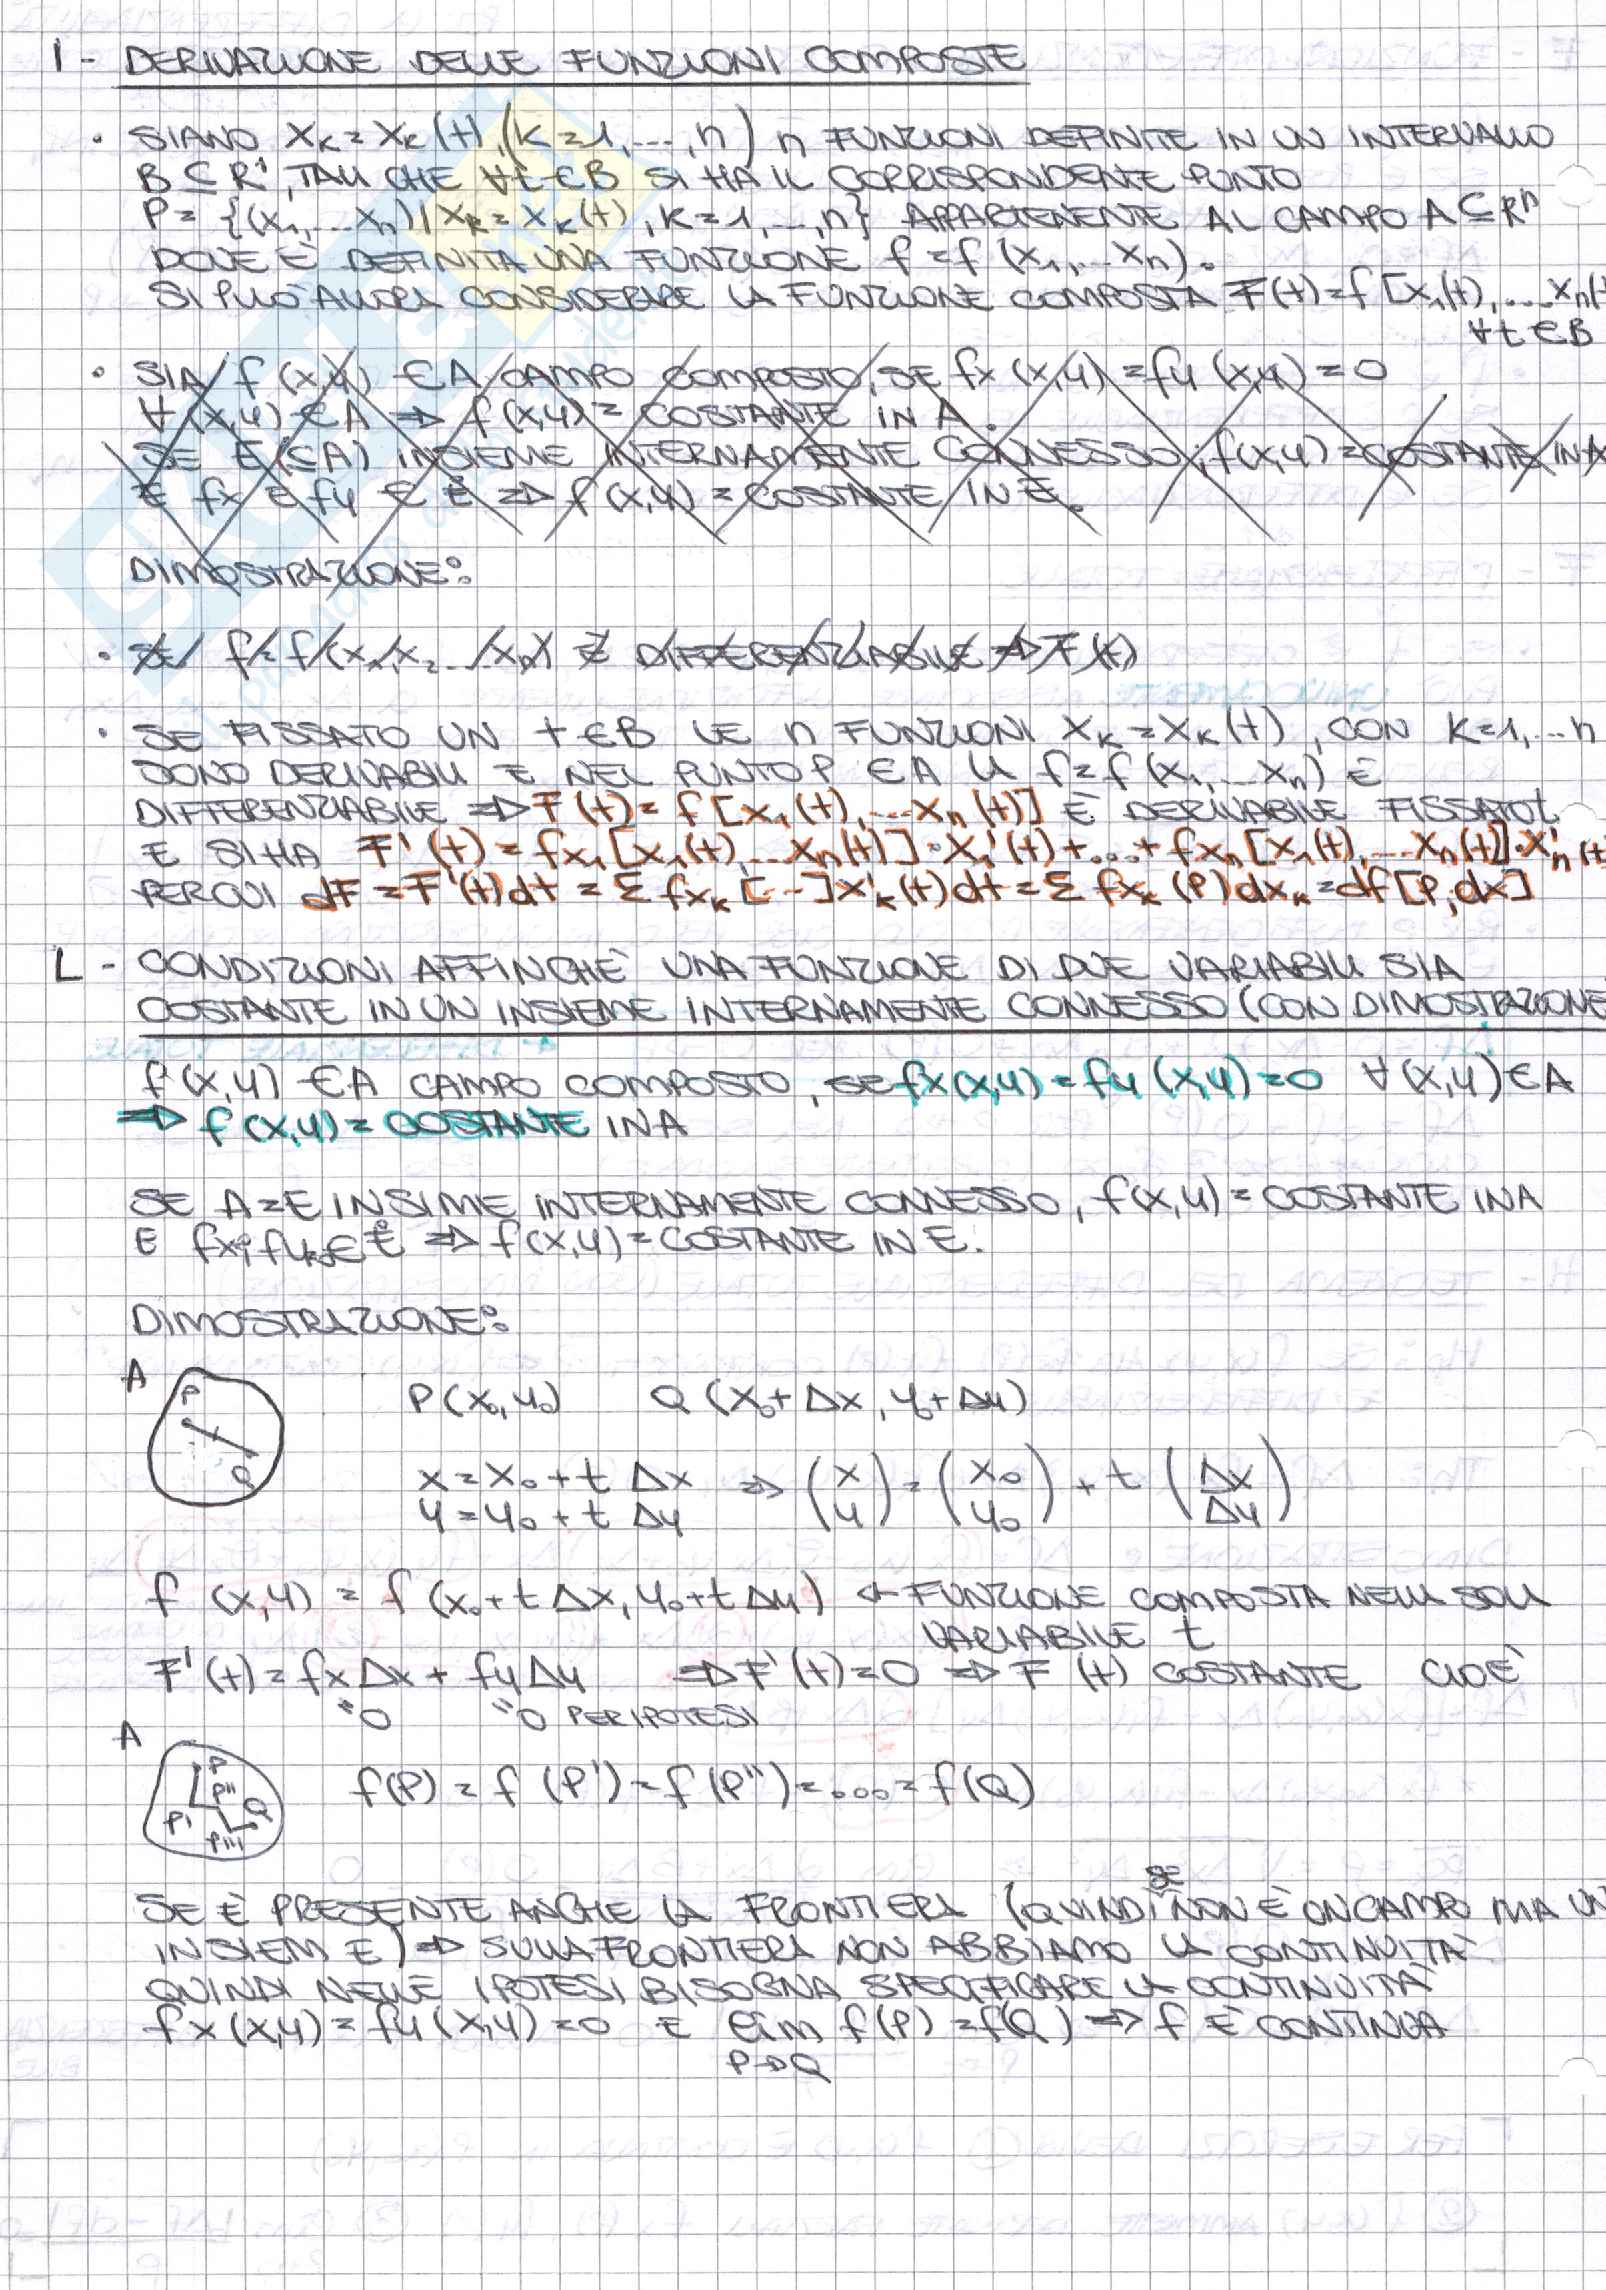 I - DERIVAZIONE DELLE FUNZIONI COMPOSTE
• SIANO Xk = Xk (t), (K=1, ..., n) n FUNZIONI DEFINITE IN UN INTERVALLO
B ⊆ R¹, TALI CHE ∀t ∈ B SI HA IL CORRISPONDENTE PUNTO
P = {(x₁, ... xn) / xk = xk(t), k=1, ..., n} APPARTENENTE AL CAMPO A ⊆ Rⁿ
DOVE È DEFINITA UNA FUNZIONE f = f (x₁, ... xn).
SI PUÒ ALLORA CONSIDERARE LA FUNZIONE COMPOSTA F(t) = f [x₁(t), ... xn(t
∀t ∈ B
• SIA f (x,y) ∈ A CAMPO COMPOSTO, SE fx (x,y) = fy (x,y) = 0
∀ (x,y) ∈ A ⇒ f (x,y) = COSTANTE IN A.
SE E (⊆A) INSIEME INTERNAMENTE CONNESSO, f(x,y) = COSTANTE IN A
E fx = fy ∈ E̊ ⇒ f (x,y) = COSTANTE IN E.
DIMOSTRAZIONE:
• SE f = f (x₁, x₂ ... xn) È DIFFERENZIABILE ⇒ F (t)
• SE FISSATO UN t ∈ B LE n FUNZIONI Xk = Xk (t), CON K=1, ... n
SONO DERIVABILI E NEL PUNTO P ∈ A LA f = f (x₁, ... xn) È
DIFFERENZIABILE ⇒ F (t) = f [x₁ (t), ... xn (t)] È DERIVABILE FISSATO t
E SI HA F' (t) = fx₁ [x₁(t), ... xn(t)] · x₁' (t) + ... + fxn [x₁(t), ... xn(t)] · x'n (t)
PER CUI dF = F'(t) dt = Σ fxk [...] x'k (t) dt = Σ fxk (P) dxk = df [P, dx]
L - CONDIZIONI AFFINCHÈ UNA FUNZIONE DI DUE VARIABILI SIA
COSTANTE IN UN INSIEME INTERNAMENTE CONNESSO (CON DIMOSTRAZIONE
f (x,y) ∈ A CAMPO COMPOSTO, SE fx (x,y) = fy (x,y) = 0 ∀ (x,y) ∈ A
⇒ f (x,y) = COSTANTE IN A
SE A = E INSIME INTERNAMENTE CONNESSO, f(x,y) = COSTANTE IN A
E fx, fy ∈ E̊ ⇒ f (x,y) = COSTANTE IN E.
DIMOSTRAZIONE:
A
P
Q
P (x₀, y₀) Q (x₀ + Δx, y₀ + Δy)
x = x₀ + t Δx ⇒ (x) = (x₀) + t (Δx)
y = y₀ + t Δy (y) (y₀) (Δy)
f (x,y) = f (x₀ + t Δx, y₀ + t Δy) ← FUNZIONE COMPOSTA NELLA SOLA
VARIABILE t
F' (t) = fx Δx + fy Δy ⇒ F' (t) = 0 ⇒ F (t) COSTANTE CIOÈ
"0 "0 PER IPOTESI
A
P
P''
P' Q
P'''
f(P) = f (P') = f (P'') = ... = f(Q)
SE È PRESENTE ANCHE LA FRONTIERA (QUINDI SE NON È UN CAMPO MA UN
INSIEM E) ⇒ SULLA FRONTIERA NON ABBIAMO LA CONTINUITÀ
QUINDI NELLE IPOTESI BISOGNA SPECIFICARE LA CONTINUITÀ
fx (x,y) = fy (x,y) = 0 E lim f(P) = f(Q) ⇒ f È CONTINUA
P→Q